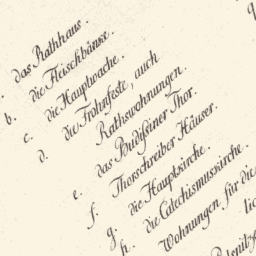 das Rathhaus.
b. die Fleischbänke.
c. die Hauptwache.
d. die Frohnfeste, auch
Rathswohnungen.
e. das Budissiner Thor.
Thorschreiber Häuser.
f. die Hauptkirche.
g. die Catechismuskirche.
h. Wohnungen für die